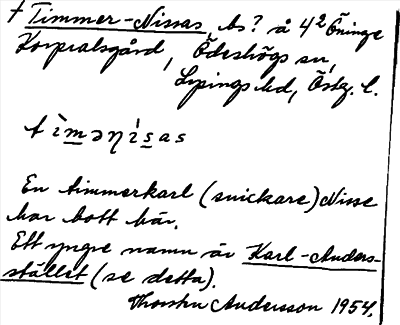 † Timmer-Nissas, bs? å 4² Öninge
Korpralsgård, Ödeshögs sn,
Lysings hd, Östg. l.
tìmənísas
En timmerkarl (snickare) Nisse
har bott här.
Ett yngre namn är Karl-Anders-
stället (se detta).
Thorsten Andersson 1954.